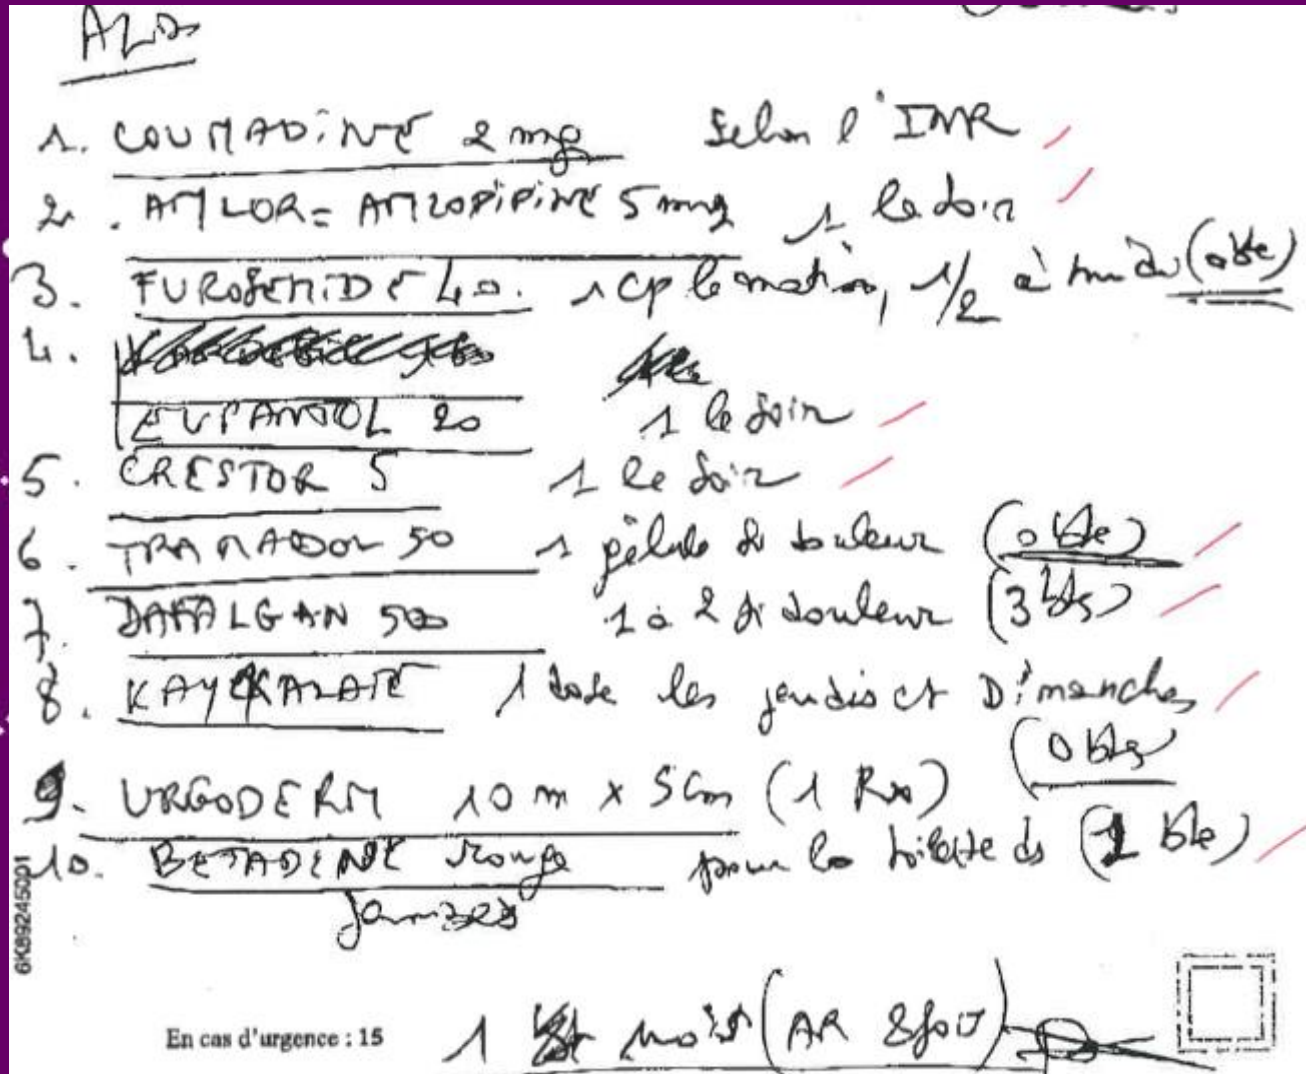 ALD
1. COUMADINE 2 mg selon l'INR
2. AMLOR = AMLODIPINE 5 mg 1 le soir
3. FUROSEMIDE 40. 1 cp le matin, 1/2 à midi (0 bte)
4.
EUPANTOL 20 1 le soir
5. CRESTOR 5 1 le soir
6. TRAMADOL 50 1 gélule si douleur (0 bte)
7. DAFALGAN 500 1 à 2 si douleur (3 bts)
8. KAYEXALATE 1 dose les jeudis et Dimanches
(0 bts
9. URGODERM 10 m x 5 cm (1 Rx)
10. BETADINE rouge pour la toilette ds (1 bte)
jambes
6K892445001
En cas d'urgence : 15
1 mois (AR